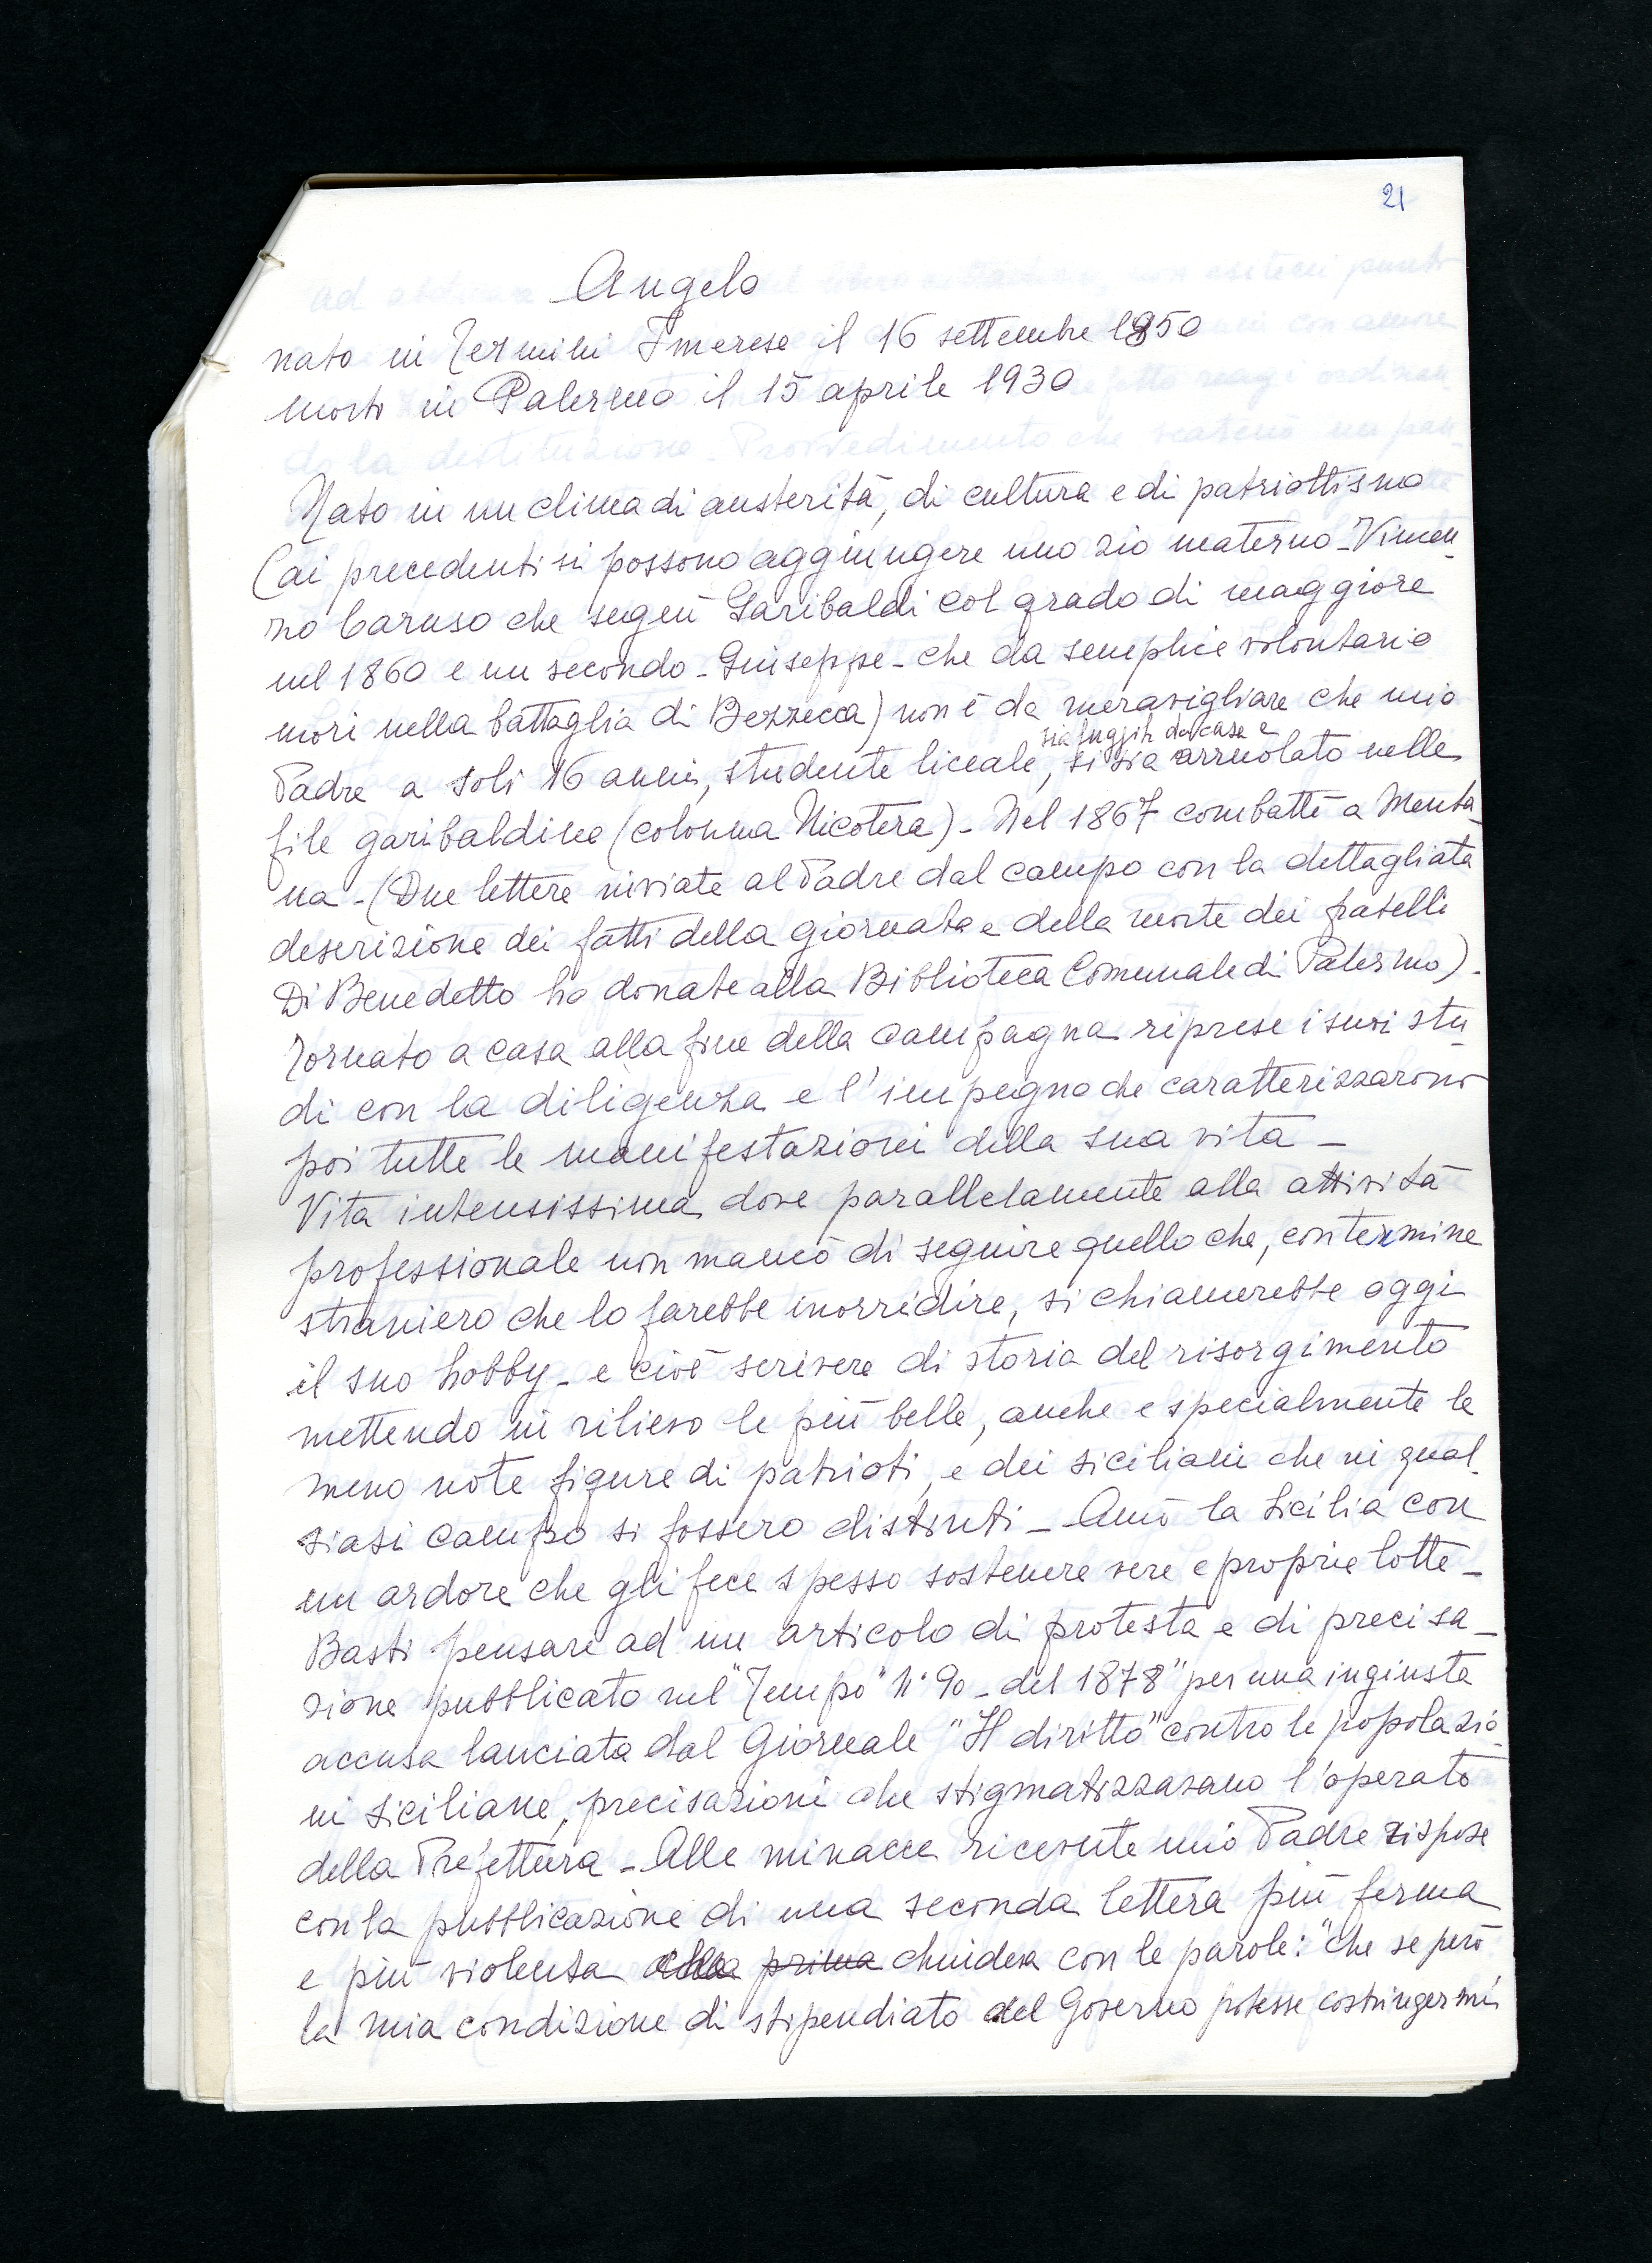 21
Angelo
nato in Termini Imerese il 16 settembre 1850
morto in Palermo il 15 aprile 1930
Nato in un clima di austerità, di cultura e di patriottismo
(ai precedenti si possono aggiungere uno zio materno - Vincen-
zo Caruso che seguì Garibaldi col grado di maggiore
nel 1860 e un secondo - Giuseppe - che da semplice volontario
morì nella battaglia di Bezzecca) non è da meravigliare che mio
sia fuggito da casa e
Padre a soli 16 anni, studente liceale, si sia arruolato nelle
file garibaldine (colonna Nicotera) - Nel 1867 combattè a Menta-
na - (Due lettere inviate al Padre dal campo con la dettagliata
descrizione dei fatti della giornata e della morte dei fratelli
Di Benedetto ho donate alla Biblioteca Comunale di Palermo).
Tornato a casa alla fine della campagna riprese i suoi stu-
di con la diligenza e l'impegno che caratterizzarono
poi tutte le manifestazioni della sua vita -
Vita intensissima dove parallelamente alla attività
professionale non mancò di seguire quello che, con termine
straniero che lo farebbe inorridire, si chiamerebbe oggi
il suo hobby - e cioè scrivere di storia del risorgimento
mettendo in rilievo le più belle, anche e specialmente le
meno note figure di patrioti, e dei siciliani che in qual-
siasi campo si fossero distinti - Amò la Sicilia con
un ardore che gli fece spesso sostenere vere e proprie lotte -
Basti pensare ad un articolo di protesta e di precisa-
zione pubblicato nel "Tempo" N° 90 - del 1878" per una ingiusta
accusa lanciata dal Giornale "Il diritto" contro le popolazio-
ni siciliane, precisazioni che stigmatizzavano l'operato
della Prefettura - Alle minacce ricevute mio Padre rispose
con la pubblicazione di una seconda lettera più ferma
e più violenta della prima chiudeva con le parole: "che se però
la mia condizione di stipendiato del Governo potesse costringermi